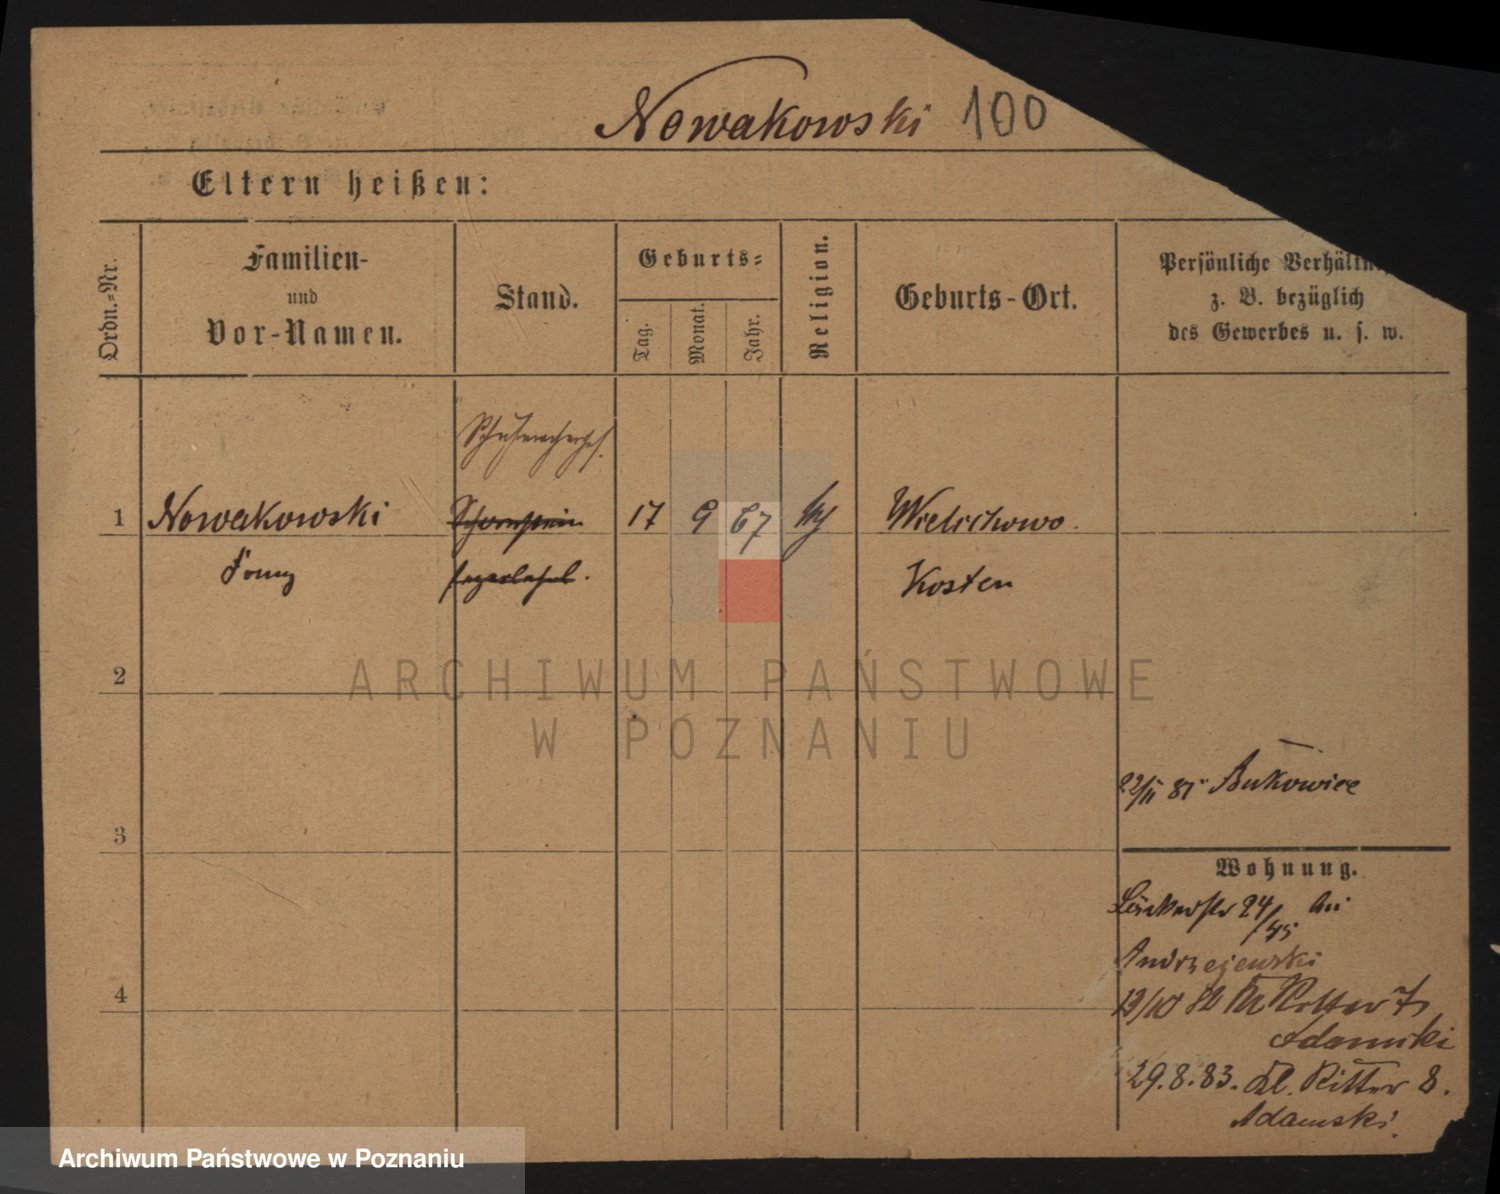 Nowakowski 100
Eltern heißen:
Ordn.=Nr.
Familien-
und
Vor-Namen.
Stand.
Geburts=
Tag.
Monat.
Jahr.
Religion.
Geburts-Ort.
Persönliche
z. B. bezüglich
des Gewerbes u. s. w.
1 Nowakowski 17 9 67 Wielichowo
Kosten
2
ARCHIWUM PAŃSTWOWE
W POZNANIU
22/11 81 Bukowiec
3
Wohnung.
24/45 bei
Andrzejewski
4
13/10 Ritter 7
Adamski
29.8.83. Kl. Ritter 8.
Adamski.
Archiwum Państwowe w Poznaniu